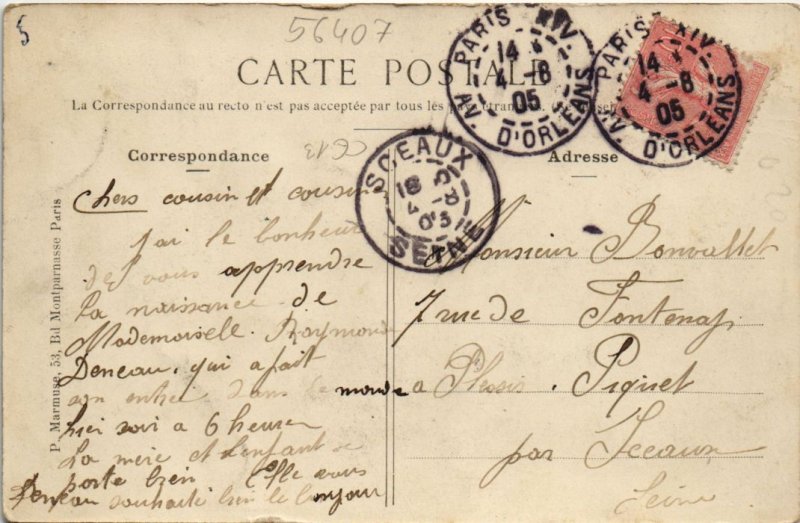 5
56407
CARTE POSTALE
La Correspondance au recto n'est pas acceptée par tous les pays
PARIS XIV
14
4-8
05
AV. D'ORLEANS
PARIS XIV
14
4-8
05
AV. D'ORLEANS
SCEAUX
18
4-8
05
SEINE
Correspondance
Adresse
P. Marmuse, 53, Bd Montparnasse Paris
Chers cousin et cousine
j'ai le bonheur
de vous apprendre
la naissance de
Mademoisell. Raymonde
Deneau, qui a fait
son entrée dans le monde
hier soir a 6 heures
La mère et l'enfant se
porte bien
Deneau souhaite bien le bonjour
Monsieur Bonvallet
7 rue de Fontenay
a Plessis. Piquet
par Sceaux
Seine